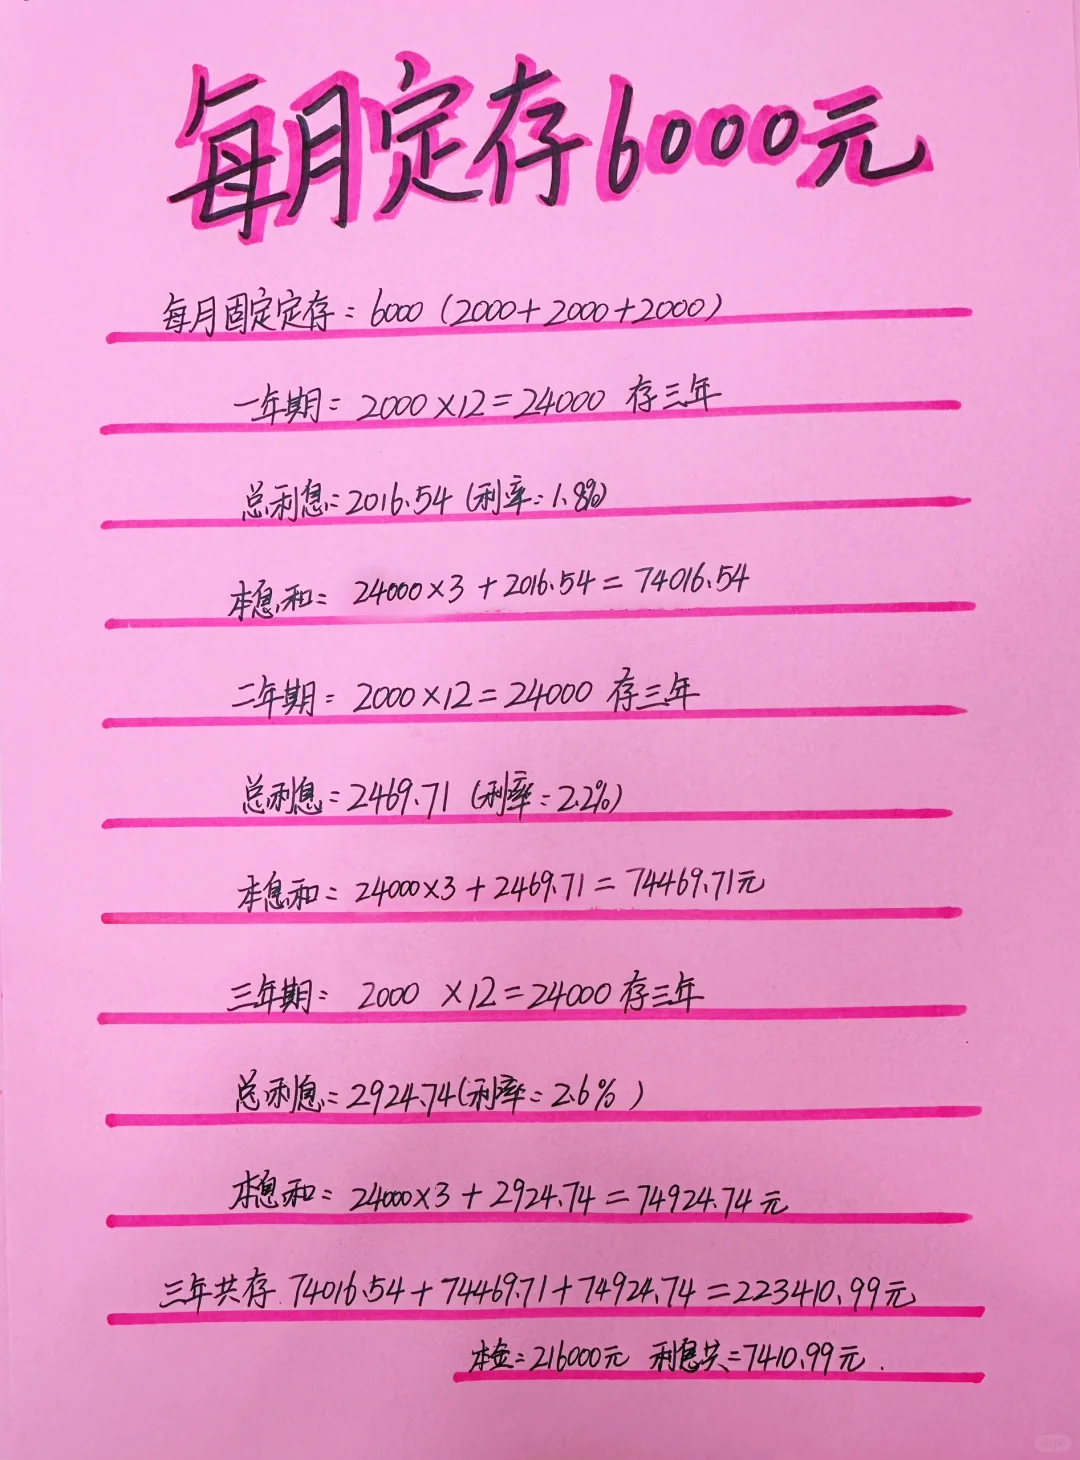 每月定存6000元
每月固定定存：6000（2000+2000+2000）
一年期：2000×12=24000 存三年
总利息：2016.54（利率：1.8%）
本息和：24000×3+2016.54=74016.54
二年期：2000×12=24000 存三年
总利息：2469.71（利率：2.2%）
本息和：24000×3+2469.71=74469.71元
三年期：2000×12=24000存三年
总利息：2924.74（利率：2.6%）
本息和：24000×3+2924.74=74924.74元
三年共存.74016.54+74469.71+74924.74=223410.99元
本金：216000元 利息共=7410.99元.